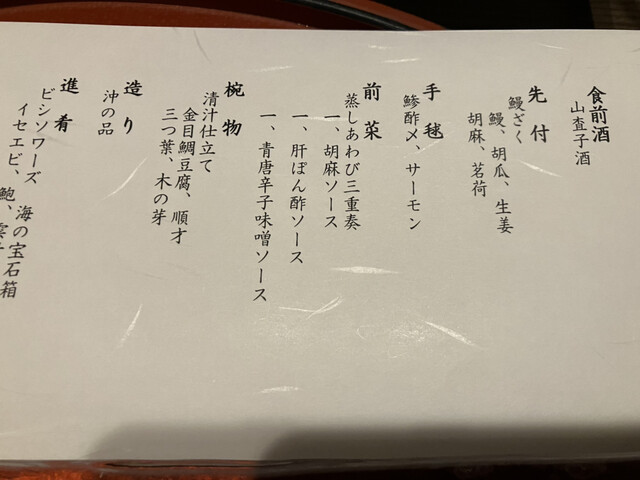 食前酒
山査子酒
先付
鰻ざく
鰻、胡瓜、生姜
胡麻、茗荷
手毬
鯵酢〆、サーモン
前菜
蒸しあわび三重奏
一、胡麻ソース
一、肝ぽん酢ソース
一、青唐辛子味噌ソース
椀物
清汁仕立て
金目鯛豆腐、順才
三つ葉、木の芽
造り
沖の品
進肴
ビシソワーズ 海の宝石箱
イセエビ、鮑、